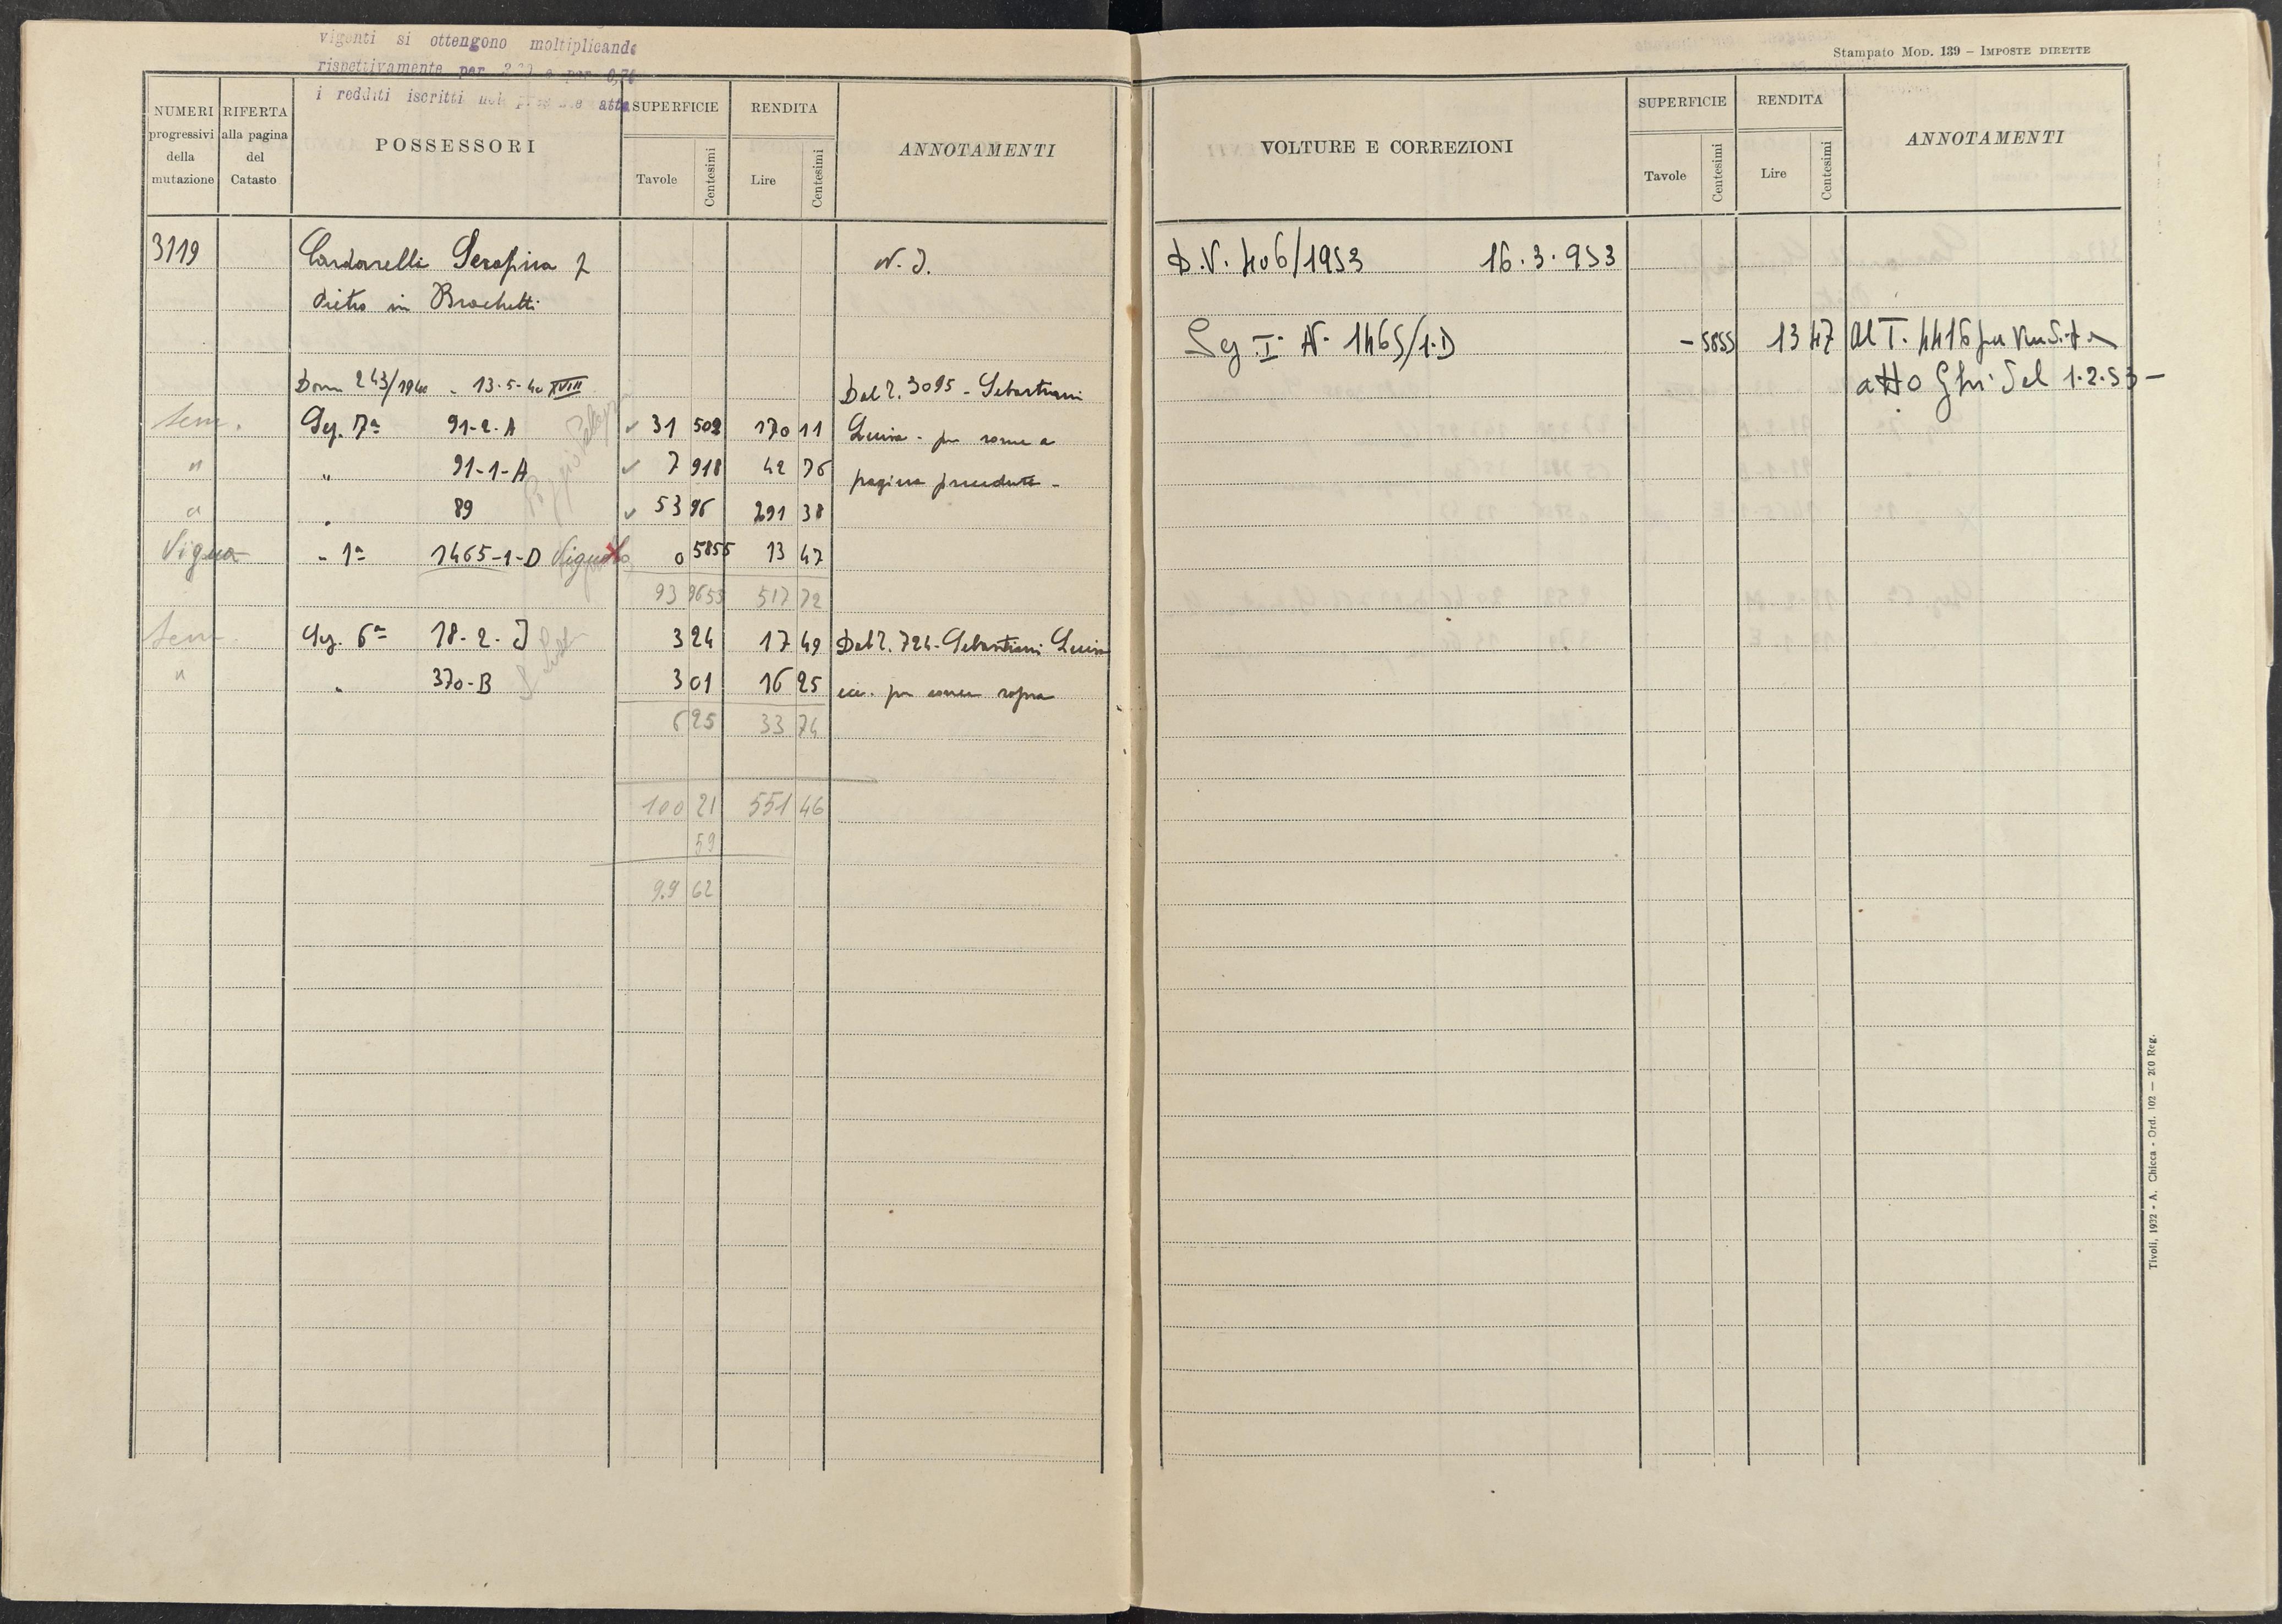 vigenti si ottengono moltiplicando
rispettivamente per
i redditi iscritti nel atto
NUMERI progressivi della mutazione
RIFERTA alla pagina del Catasto
POSSESSORI
SUPERFICIE
Tavole Centesimi
RENDITA
Lire Centesimi
ANNOTAMENTI
3119 Cardarelli Serafina N. I.
Pietro in Brachetti
243/1940 - 13-5-40 XVIII Dal 3095 - Sebastiani
Sem. Sez. 7ª 91-2-A 31 502 170 11 Luisa - per come a
" " 91-1-A 7 918 42 76 pagina precedente -
" " 89 53 96 291 38
Vigna " 1ª 1465-1-D 0 5855 13 47
93 9655 517 72
Sem. Sez. 6ª 18-2-I 3 24 17 49 Dal 724 - Sebastiani Luisa
" " 370-B 3 01 16 25 ecc. per come sopra
6 25 33 74
100 21 551 46
59
99 62
Stampato MOD. 139 – IMPOSTE DIRETTE
VOLTURE E CORREZIONI
SUPERFICIE
Tavole Centesimi
RENDITA
Lire Centesimi
ANNOTAMENTI
D.V. 406/1953 16.3.953
Sez I N. 1465/1.D - 5855 13 47 Al T. 4416 per
atto del 1.2.53 -
Tivoli, 1932 - A. Chicca - Ord. 102 — 200 Reg.